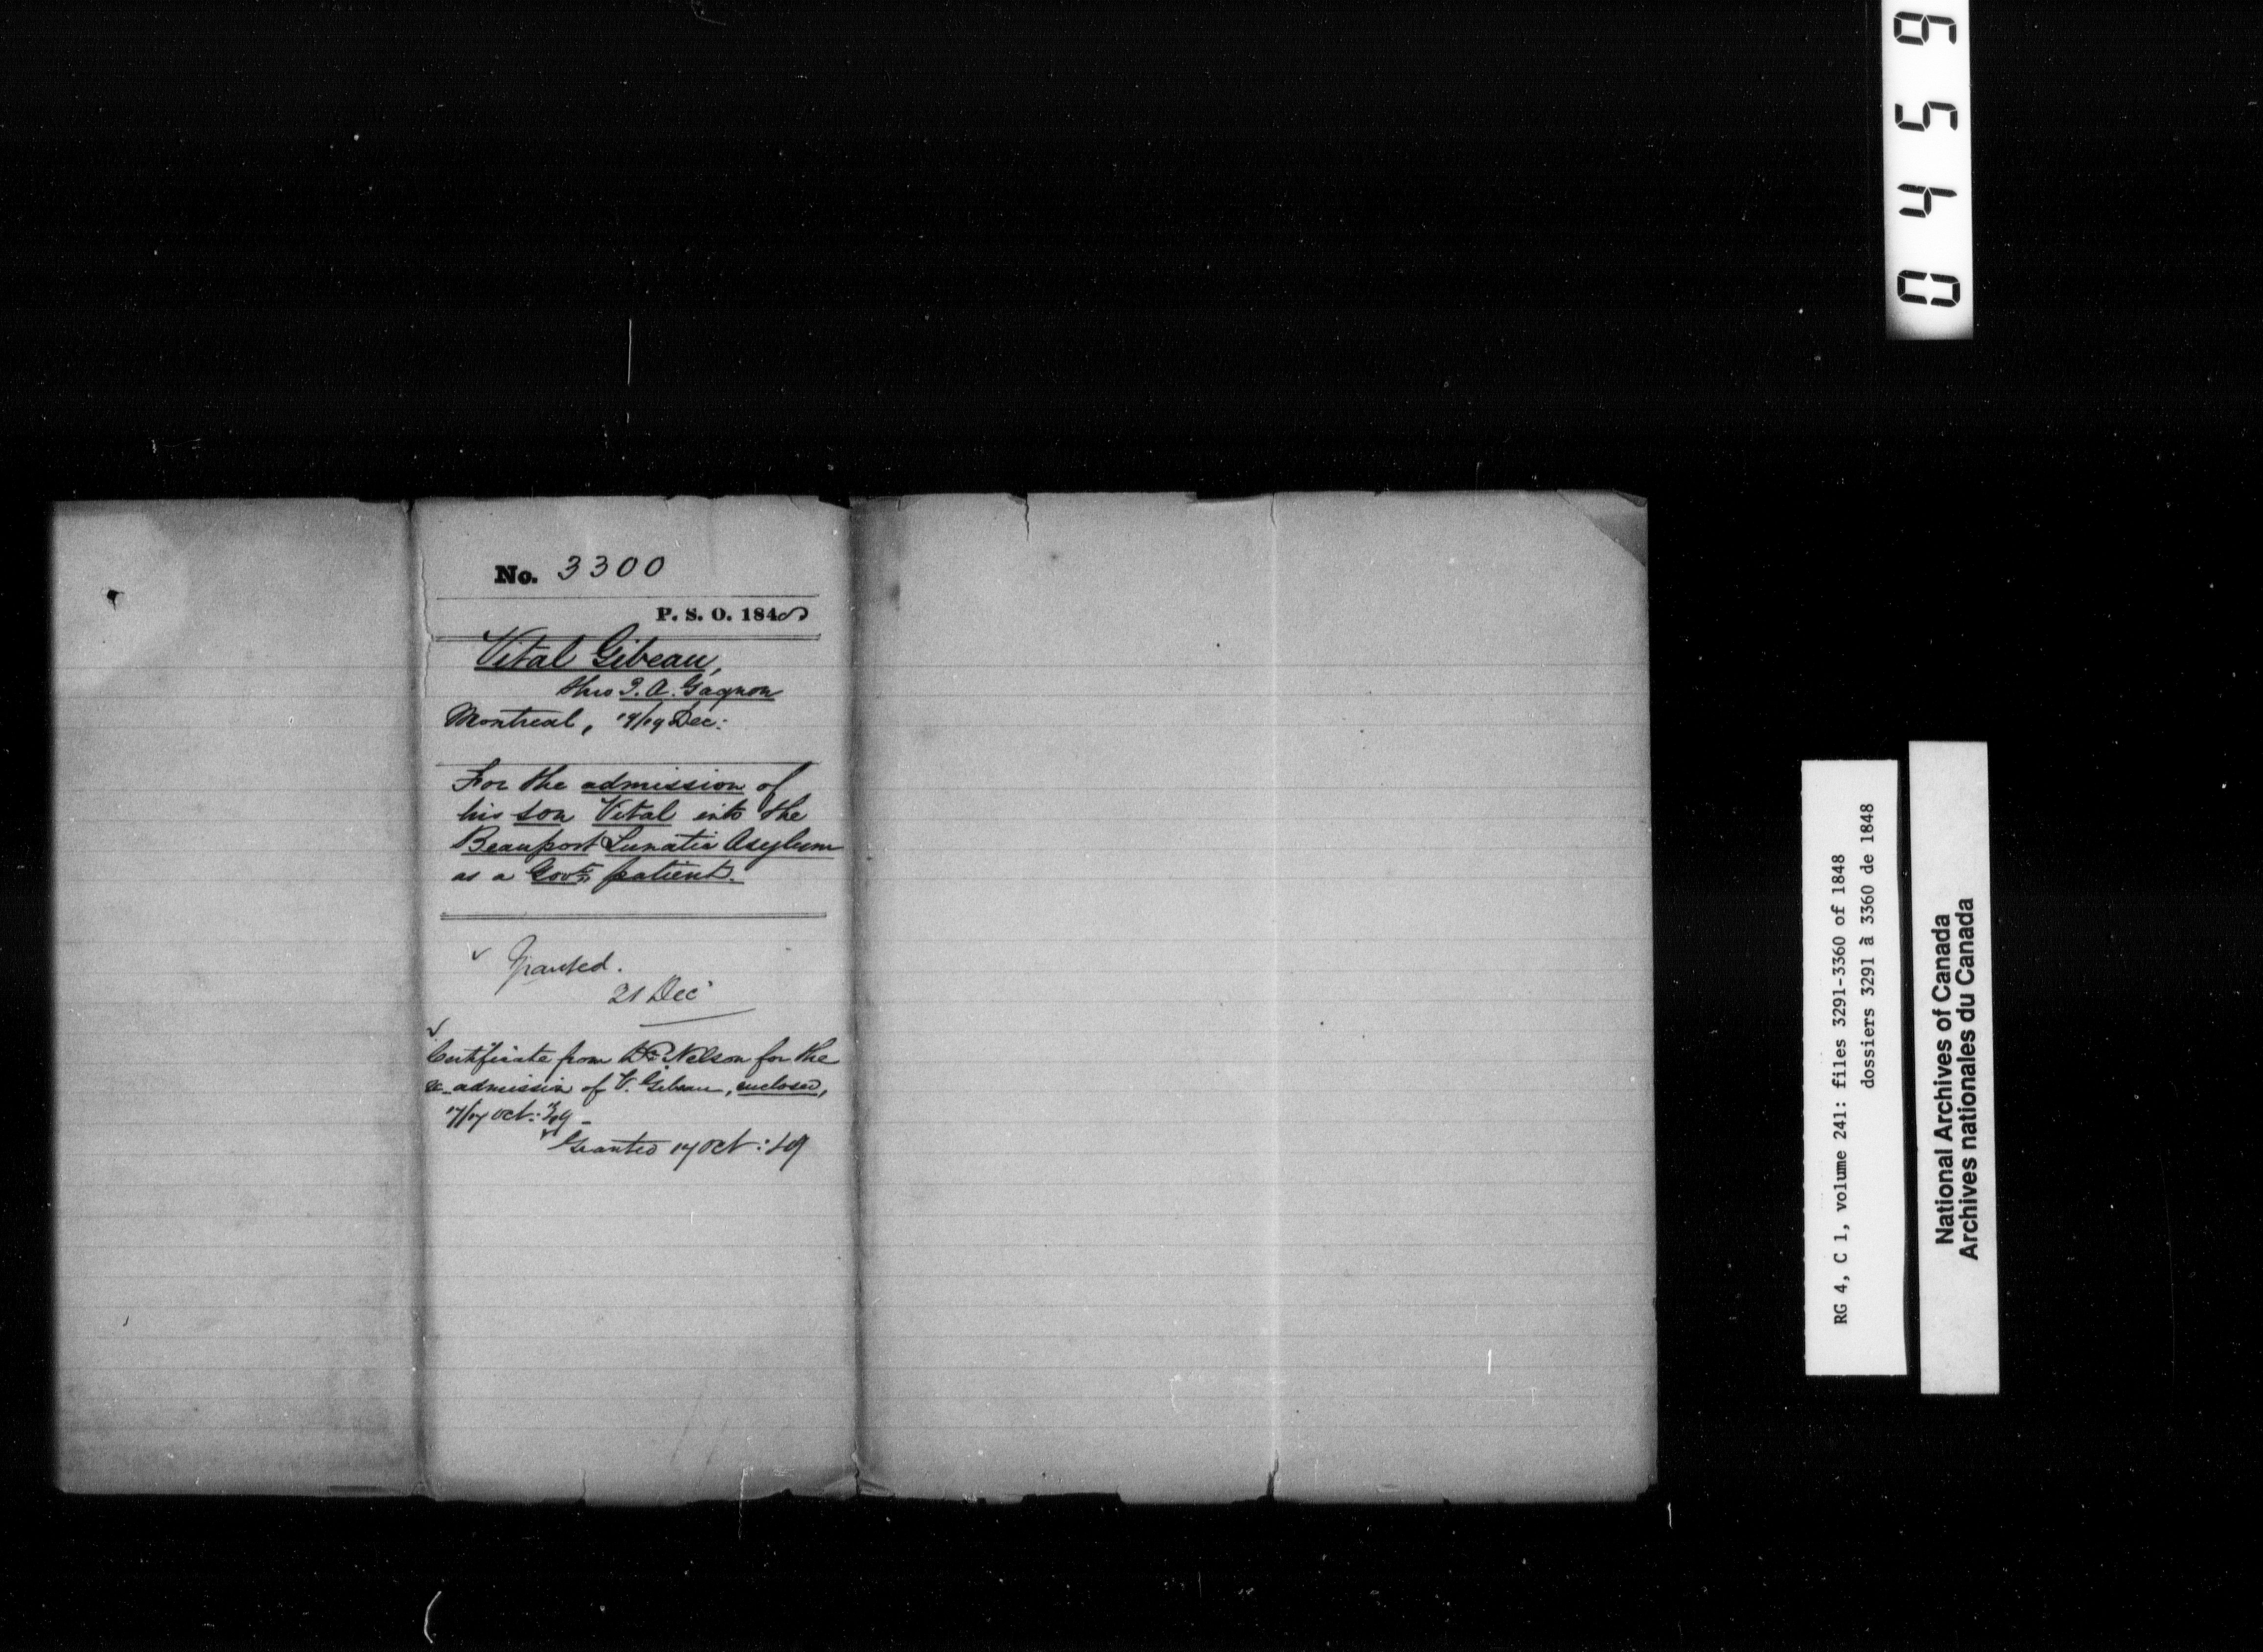 No. 3300
P. S. O. 1848
Vital Gibeau,
thro J. A. Gagnon
Montreal, 19/19 Dec:
For the admission of
his son Vital into the
Beauport Lunatic Asylum
as a Govt patient.
✓ Granted.
21 Dec
✓
Certificate from Dr. Nelson for the
re-admission of V. Gibeau, enclosed,
17/17 Oct: /49 -
✓ Granted 17 Oct: /49
0459
RG 4, C 1, volume 241: files 3291-3360 of 1848
dossiers 3291 à 3360 de 1848
National Archives of Canada
Archives nationales du Canada